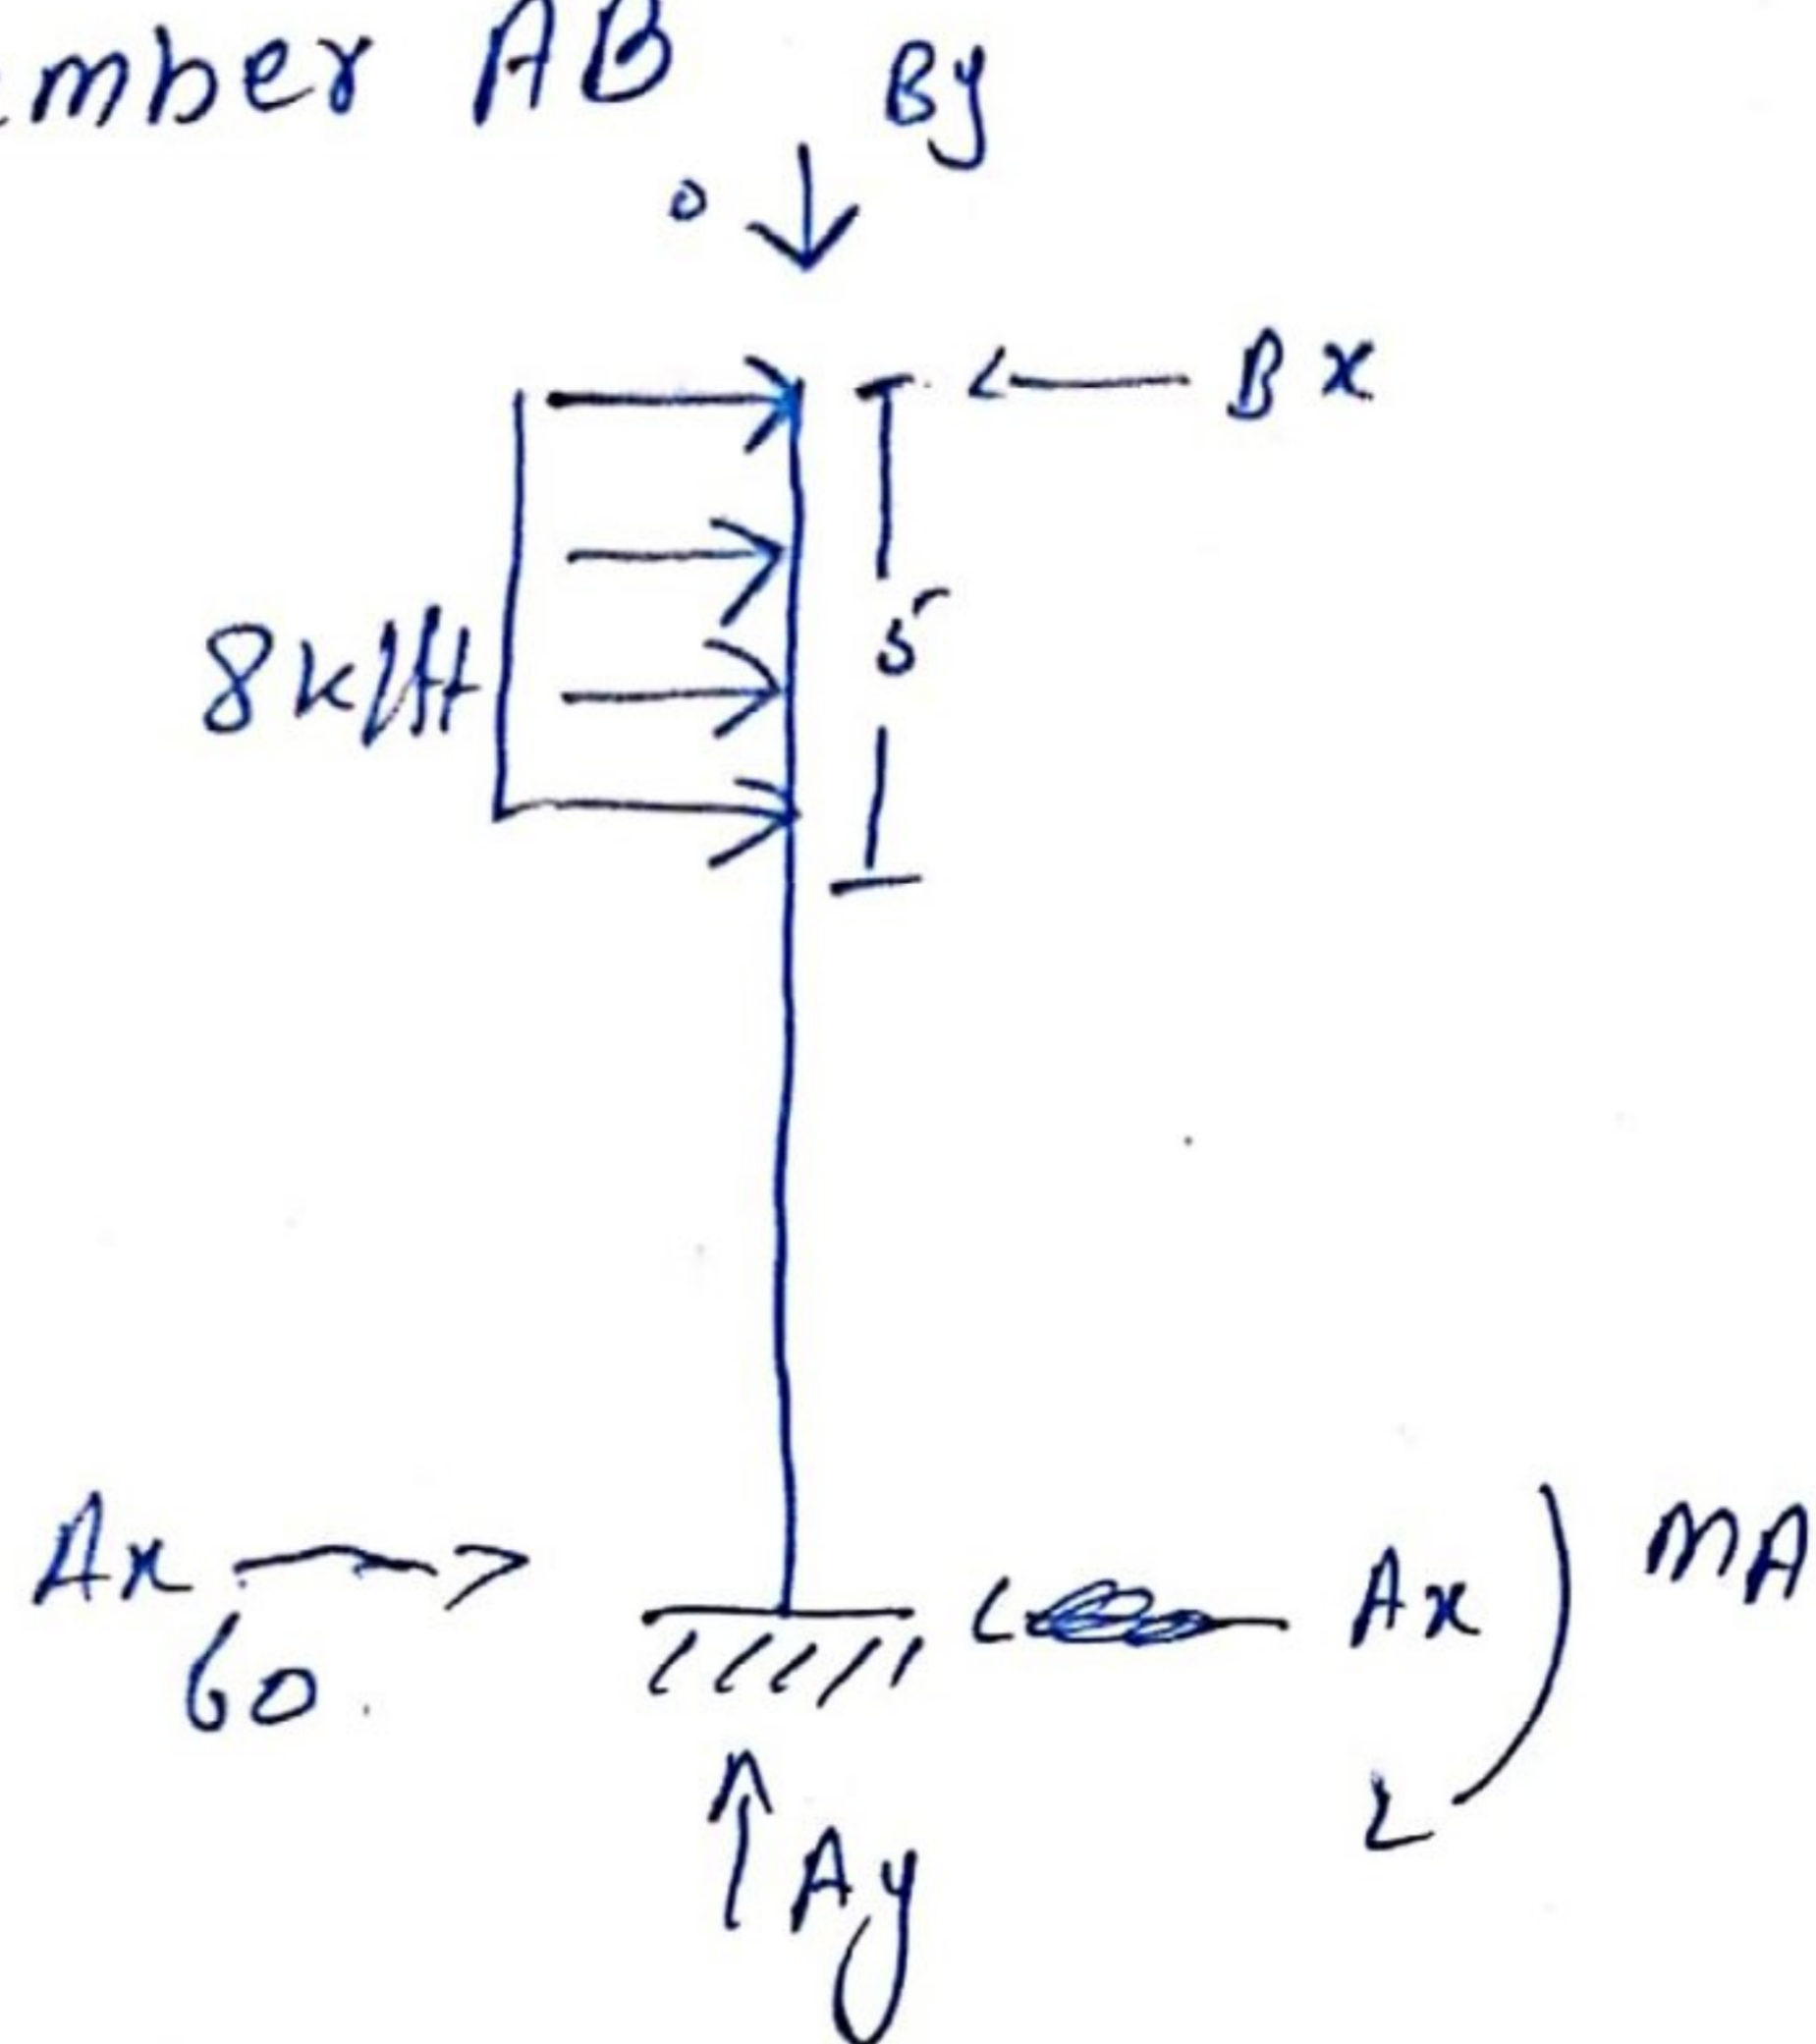 mber AB
By
0
Bx
5
8k/ft
Ax
60.
Ax
MA
Ay